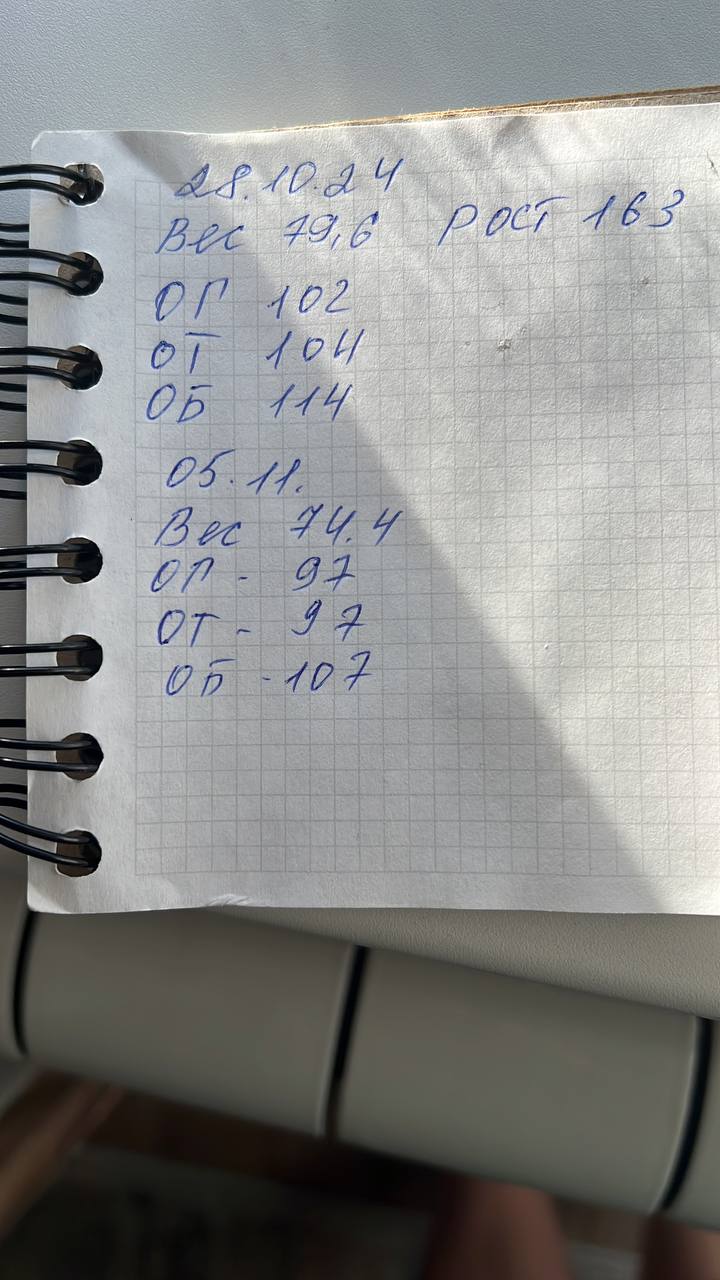 28.10.24
Вес 79,6 рост 163
ОГ 102
ОТ 104
ОБ 114
05.11.
Вес 74.4
ОГ - 97
ОТ - 97
ОБ - 107